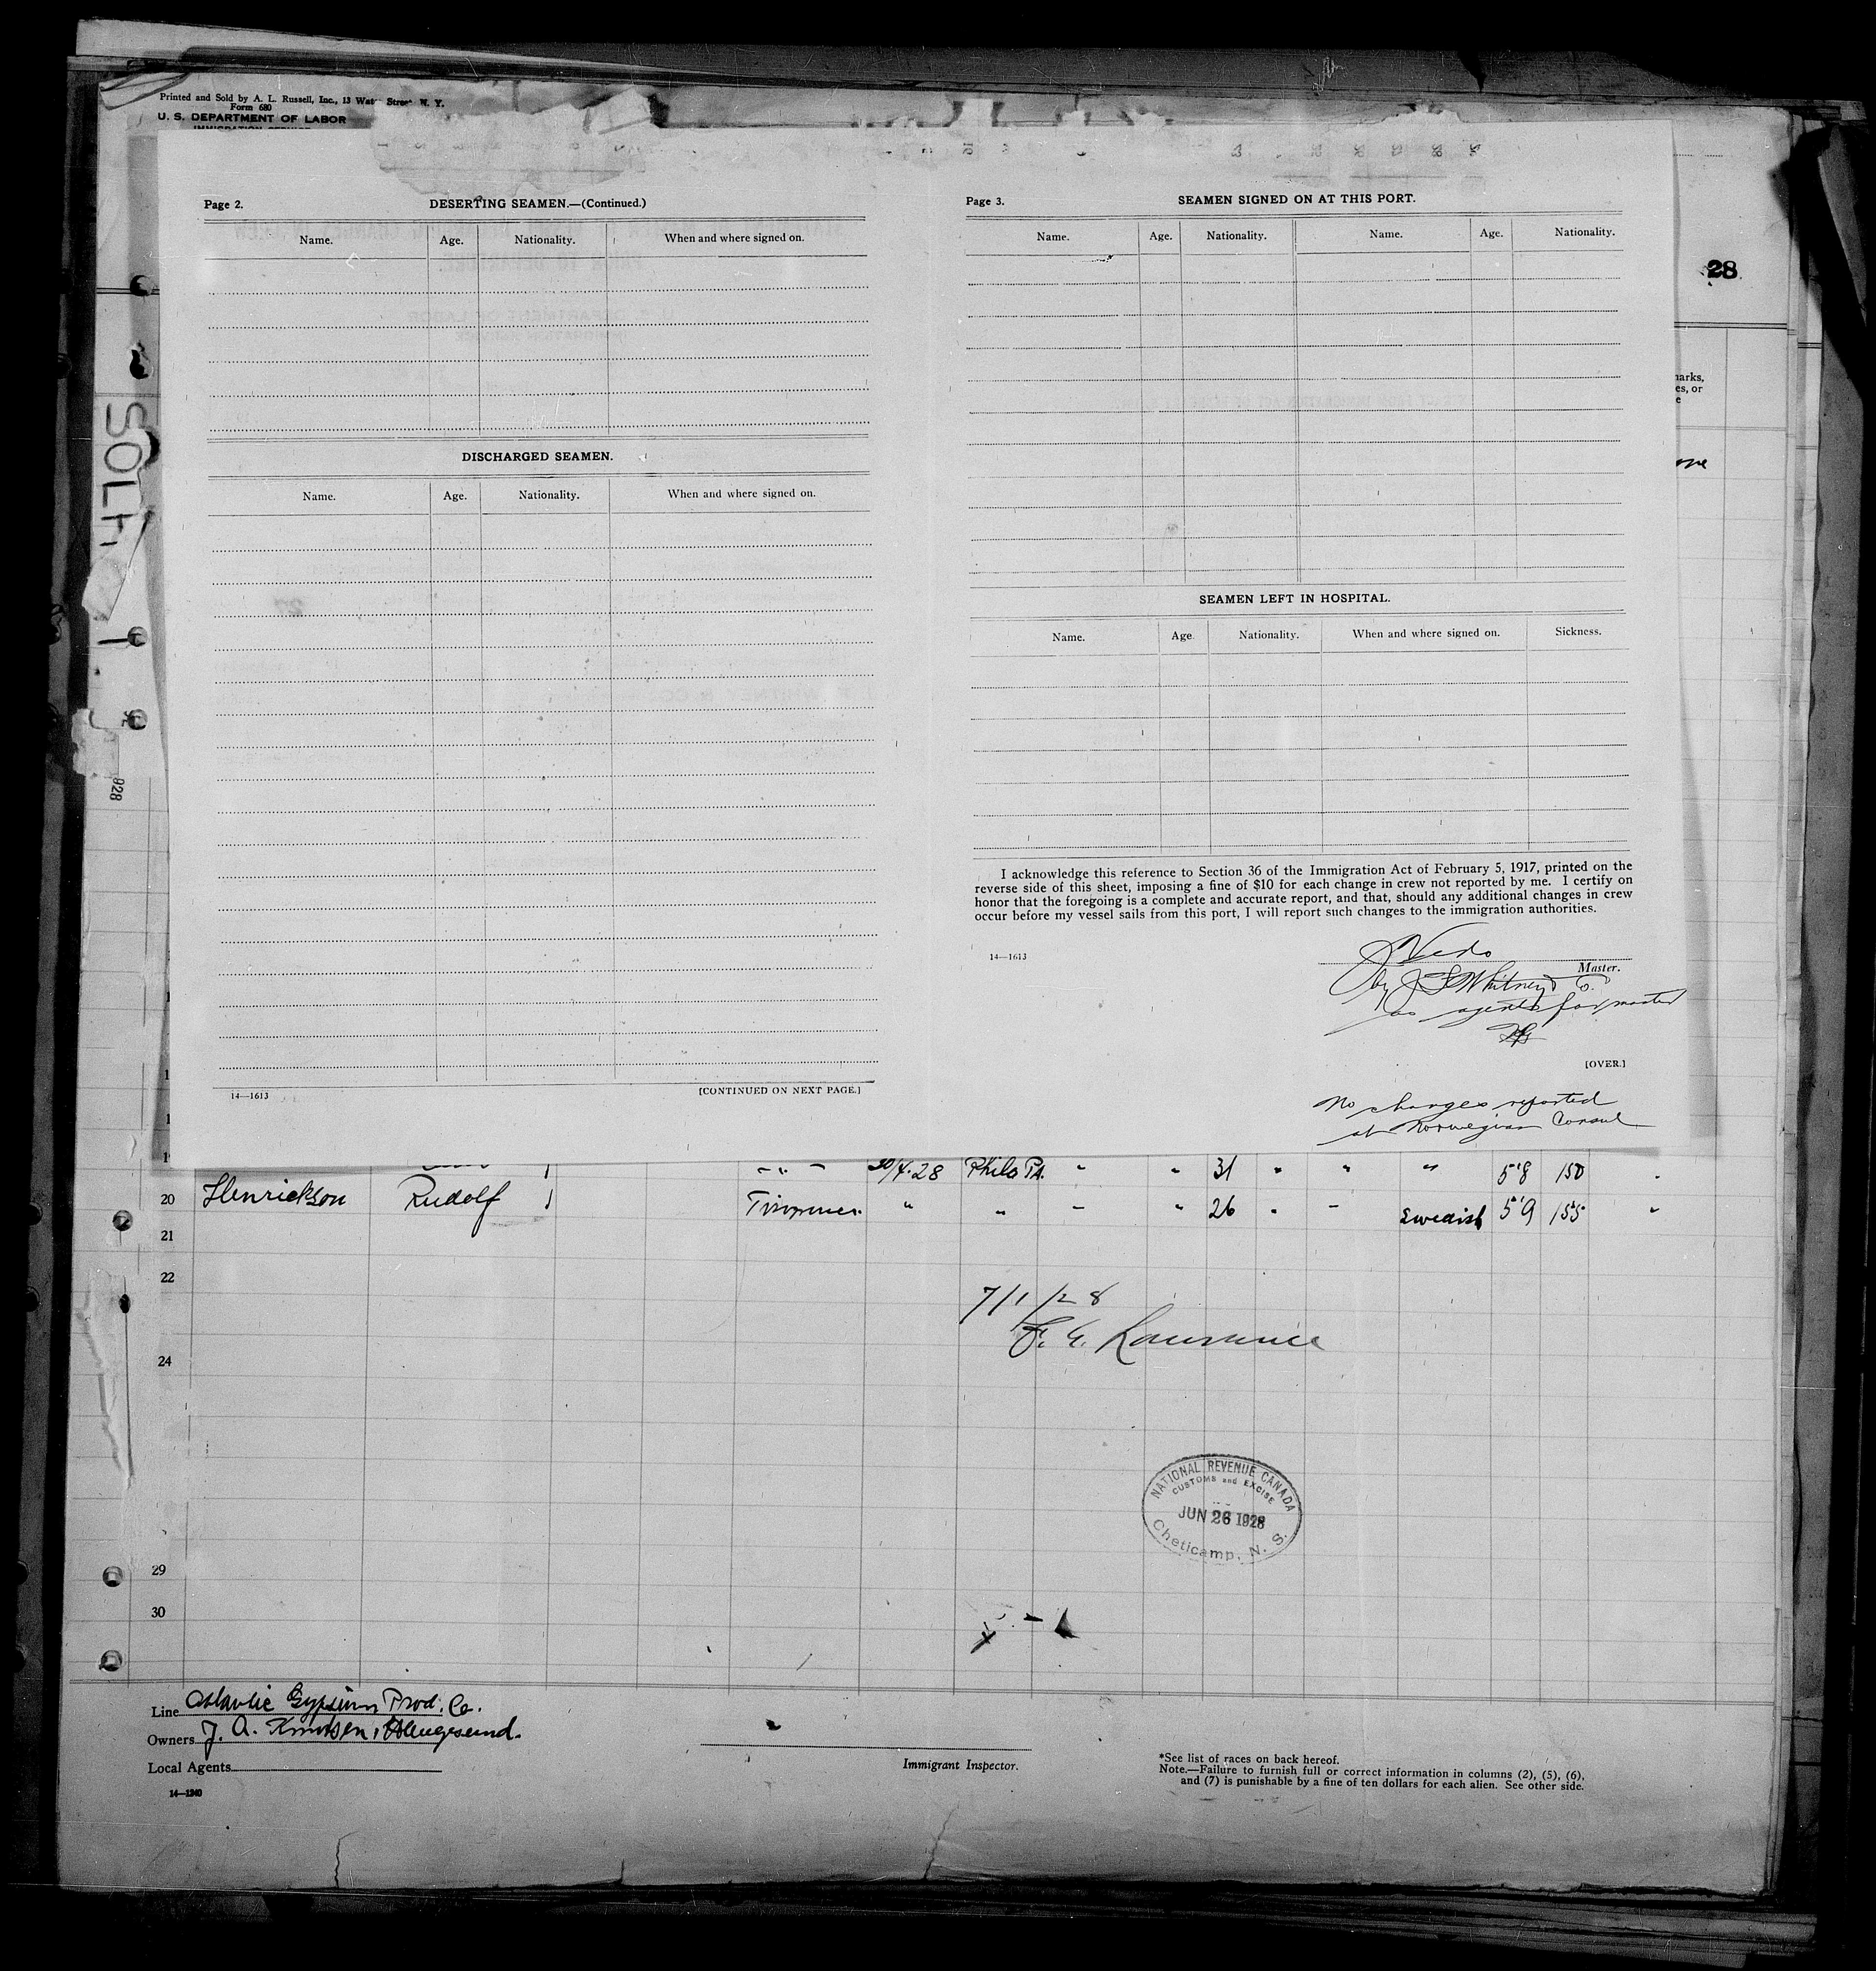 Printed and Sold by A. L. Russell, Inc., 13 Water Street N. Y.
Form 680
U. S. DEPARTMENT OF LABOR
28
arks,
es, or
e
SOLH
928
Page 2.
DESERTING SEAMEN.—(Continued.)
Name. Age. Nationality. When and where signed on.
DISCHARGED SEAMEN.
Name. Age. Nationality. When and where signed on.
14—1613
[CONTINUED ON NEXT PAGE.]
Page 3.
SEAMEN SIGNED ON AT THIS PORT.
Name. Age. Nationality. Name. Age. Nationality.
SEAMEN LEFT IN HOSPITAL.
Name. Age Nationality. When and where signed on. Sickness.
I acknowledge this reference to Section 36 of the Immigration Act of February 5, 1917, printed on the
reverse side of this sheet, imposing a fine of $10 for each change in crew not reported by me. I certify on
honor that the foregoing is a complete and accurate report, and that, should any additional changes in crew
occur before my vessel sails from this port, I will report such changes to the immigration authorities.
14—1613
Master.
by J F Whitney & Co.
as agents for master
[OVER.]
No changes reported
at Norwegian Consul
30/4.28 Phila Pa. " " 31 " " " 5'8 150
20 Henrickson Rudolf Trimmer " " " " 26 " " Swedish 5'9 155 "
21
22
7/1/28
24
NATIONAL REVENUE CANADA
CUSTOMS and EXCISE
JUN 26 1928
Cheticamp, N. S.
29
30
Line Atlantic Gypsum Prod. Co.
Owners J. A. Knutsen, Haugesund.
Local Agents
14—1240
Immigrant Inspector.
*See list of races on back hereof.
Note.—Failure to furnish full or correct information in columns (2), (5), (6),
and (7) is punishable by a fine of ten dollars for each alien. See other side.